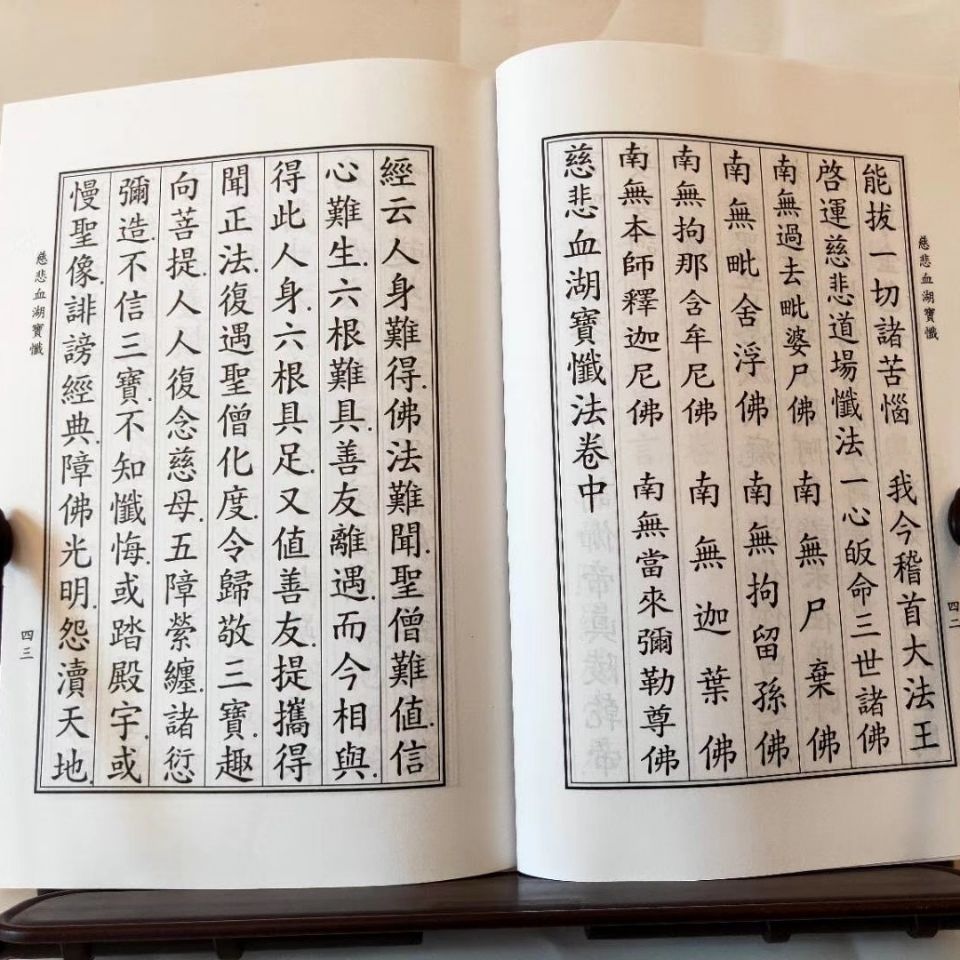 慈悲血湖寶懺
四二
能拔一切諸苦惱 我今稽首大法王
啓運慈悲道場懺法 一心皈命三世諸佛
南無過去毗婆尸佛 南無尸棄佛
南無毗舍浮佛 南無拘留孫佛
南無拘那含牟尼佛 南無迦葉佛
南無本師釋迦尼佛 南無當來彌勒尊佛
慈悲血湖寶懺法卷中
經云人身難得.佛法難聞.聖僧難値.信
心難生.六根難具.善友離遇.而今相與.
得此人身.六根具足.又値善友.提攜得
聞正法.復遇聖僧化度.令歸敬三寶.趣
向菩提.人人復念慈母.五障縈纏.諸愆
彌造.不信三寶.不知懺悔.或踏殿宇.或
慢聖像.誹謗經典.障佛光明.怨瀆天地.
慈悲血湖寶懺
四三